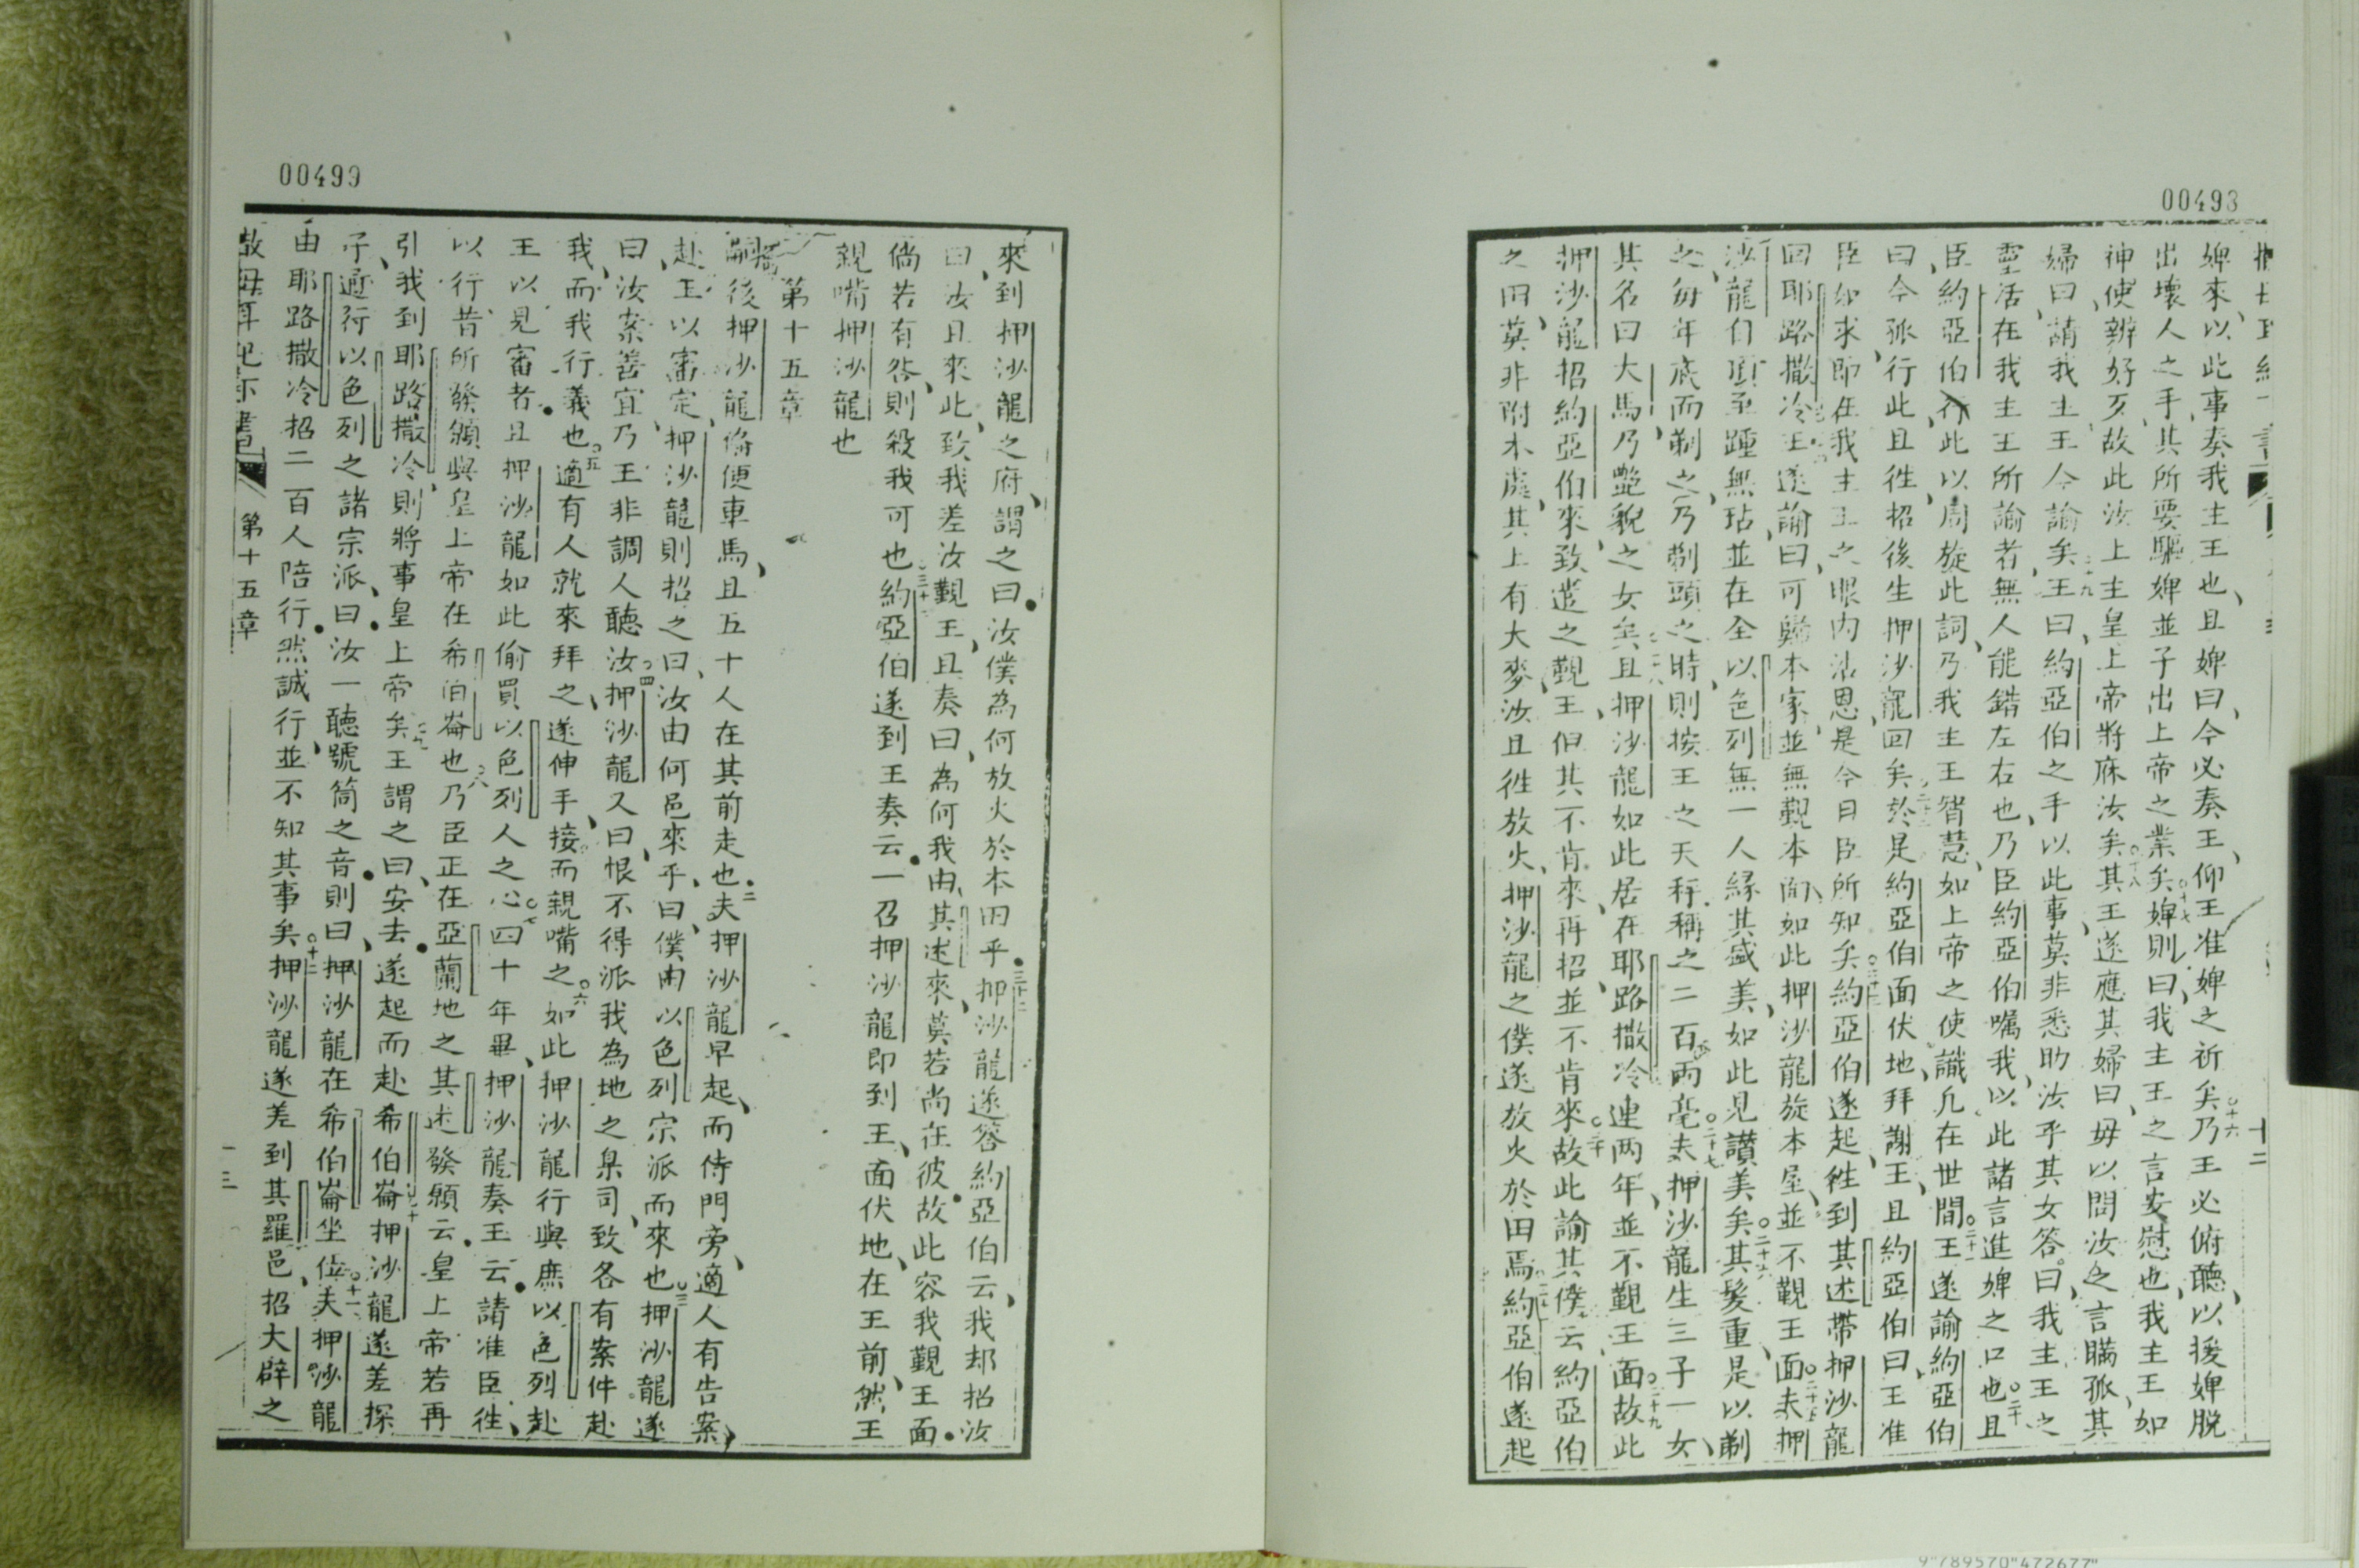 00498
婢來以此事奏我主王也且婢曰今必奏王仰王准婢之祈矣○十六乃王必俯聽以援婢脫
出壞人之手其所要驅婢並子出上帝之業矣○十七婢則曰我主王之言安慰也我主王如
神使辨好歹故此汝上主皇上帝將庥汝矣○十八其王遂應其婦曰毋以問汝之言瞞孤其
婦曰請我主王今諭矣○十九王曰約亞伯之手以此事莫非悉助汝乎其女答曰我主王之
靈活在我主王所諭者無人能錯左右也乃臣約亞伯囑我以此諸言進婢之口也○二十且
臣約亞伯行此以周旋此詞乃我主王智慧如上帝之使識凡在世間○二十一王遂諭約亞伯
曰今孤行此且徃招後生押沙龍回矣○二十二於是約亞伯面伏地拜謝王且約亞伯曰王准
臣如求即在我主王之眼内沾恩是今日臣所知矣○二十三約亞伯遂起徃到其述帶押沙龍
回耶路撒冷王遂諭曰可歸本家並無觀本面如此押沙龍旋本屋並不觀王面○二十五夫押
沙龍自頂至踵無玷並在全以色列無一人緣其盛美如此見讚美矣○二十六其髮重是以剃
之每年底而剃之乃剃頭之時則按王之天秤稱之二百兩毫○二十七夫押沙龍生三子一女
其名曰大馬乃艷貌之女矣○二十八且押沙龍如此居在耶路撒冷連两年並不觀王面○二十九故此
押沙龍招約亞伯來致遣之覲王但其不肯來再招並不肯來○三十故此諭其僕云約亞伯
之田莫非附本處其上有大麥汝且徃放火押沙龍之僕遂放火於田焉○三十一約亞伯遂起
十二
00499
來到押沙龍之府謂之曰汝僕為何放火於本田乎○三十二押沙龍遂答約亞伯云我却招汝
曰汝且來此致我差汝覲王且奏曰為何我由其述來莫若尚在彼故此容我覲王面
倘若有咎則殺我可也○三十三約亞伯遂到王奏云一召押沙龍即到王面伏地在王前然王
親嘴押沙龍也
第十五章
嗣後押沙龍俻便車馬且五十人在其前走也○二夫押沙龍早起而侍門旁適人有告案
赴王以審定押沙龍則招之曰汝由何邑來乎曰僕由以色列宗派而來也○三押沙龍遂
曰汝案善宜乃王非調人聽汝○四押沙龍又曰恨不得派我為地之臬司致各有案件赴
我而我行義也○五適有人就來拜之遂伸手接而親嘴之○六如此押沙龍行與庶以色列赴
王以見審者且押沙龍如此偷買以色列人之心○七四十年畢押沙龍奏王云請准臣徃
以行昔所發願與皇上帝在希伯崙也○八乃臣正在亞蘭地之其述發願云皇上帝若再
引我到耶路撒冷則將事皇上帝矣○九王謂之曰安去遂起而赴希伯崙○十押沙龍遂差探
子遍行以色列之諸宗派曰汝一聽號筒之音則曰押沙龍在希伯崙坐位○十一夫押沙龍
由耶路撒冷招二百人陪行然誠行並不知其事矣○十二押沙龍遂差到其羅邑招大辟之
撒母耳紀下書
第十五章
十三